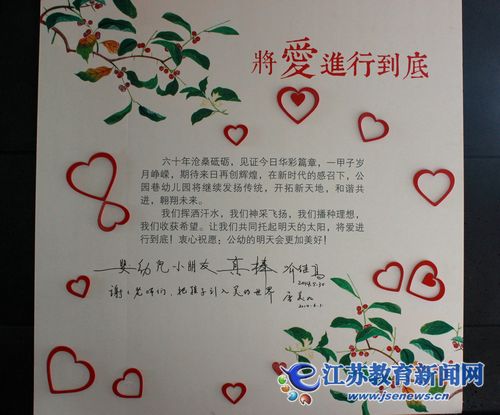 將愛進行到底
六十年沧桑砥砺，见证今日华彩篇章，一甲子岁
月峥嵘，期待来日再创辉煌，在新时代的感召下，公
园巷幼儿园将继续发扬传统，开拓新天地，和谐共
进，翱翔未来。
我们挥洒汗水，我们神采飞扬，我们播种理想，
我们收获希望。让我们共同托起明天的太阳，将爱进
行到底！衷心祝愿：公幼的明天会更加美好！
婴幼儿小朋友 真棒
谢谢老师们，把孩子引入美的世界
江苏教育新闻网
www.jsenews.cn